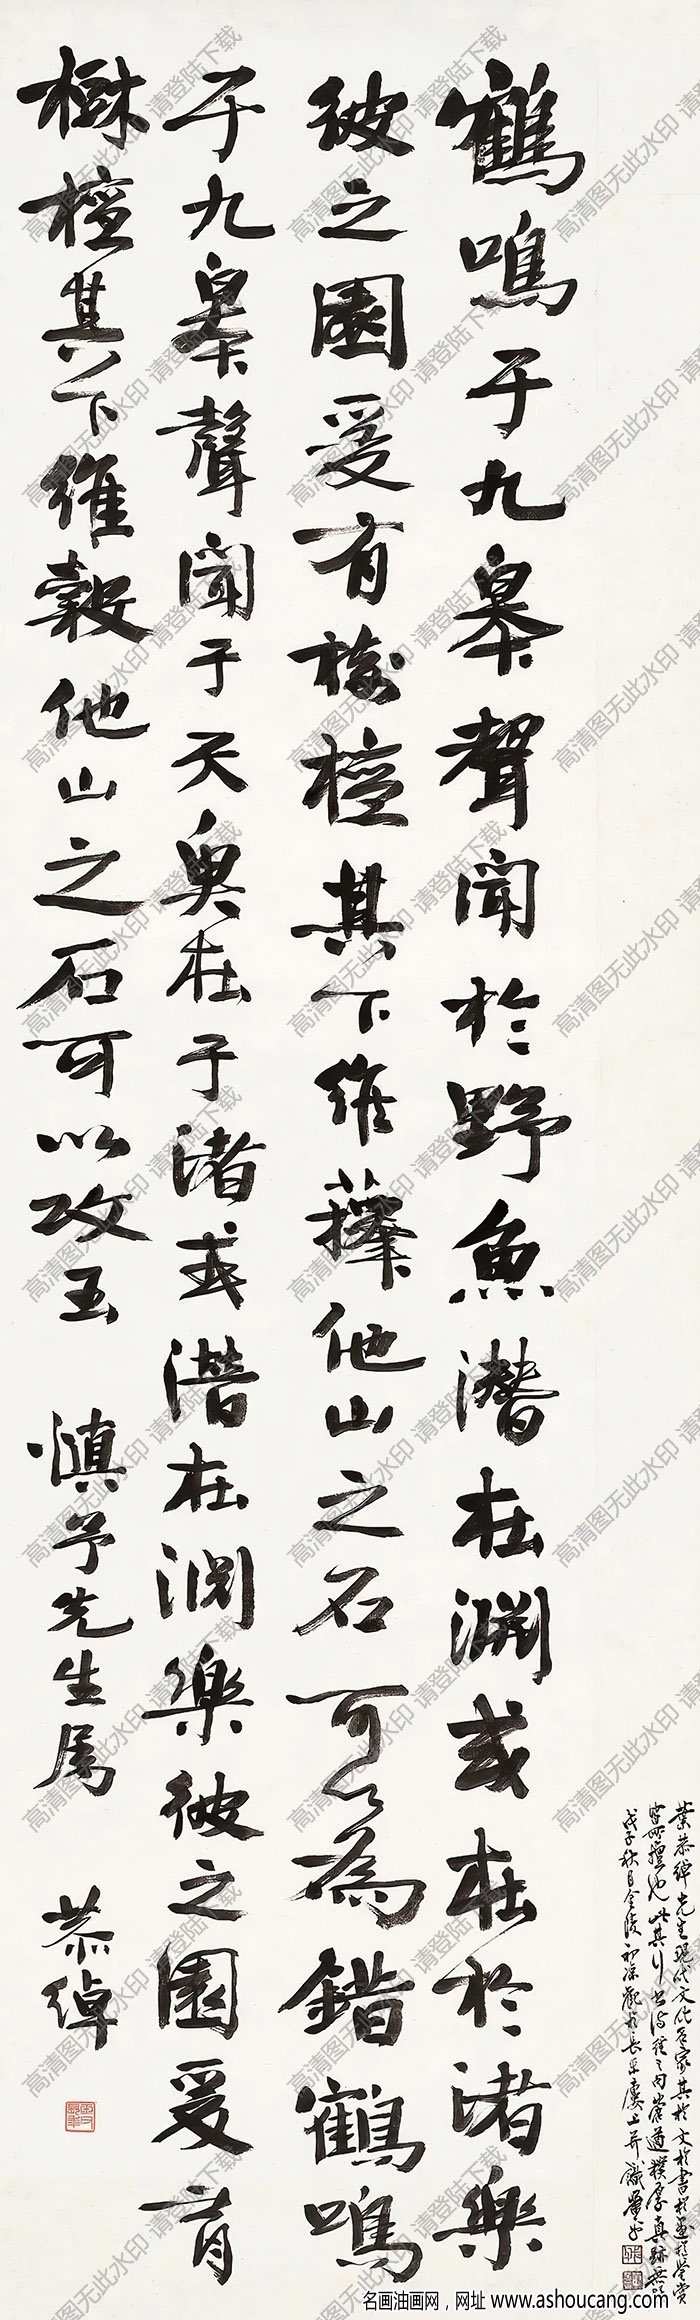 鶴鳴于九皋聲聞於野魚潛在淵或在於渚樂
彼之園爰有樹檀其下維蘀他山之石可以為錯鶴鳴
于九皋聲聞于天魚在于渚或潛在淵樂彼之園爰有
樹檀其下維榖他山之石可以攻玉 慎予先生屬 恭綽
葉恭綽先生現代文化名家其於文於書於畫於鑒賞
皆所擅也此其行書詩經之句
戊子秋月金陵
高清图无此水印 请登陆下载
名画油画网，网址 www.ashoucang.com